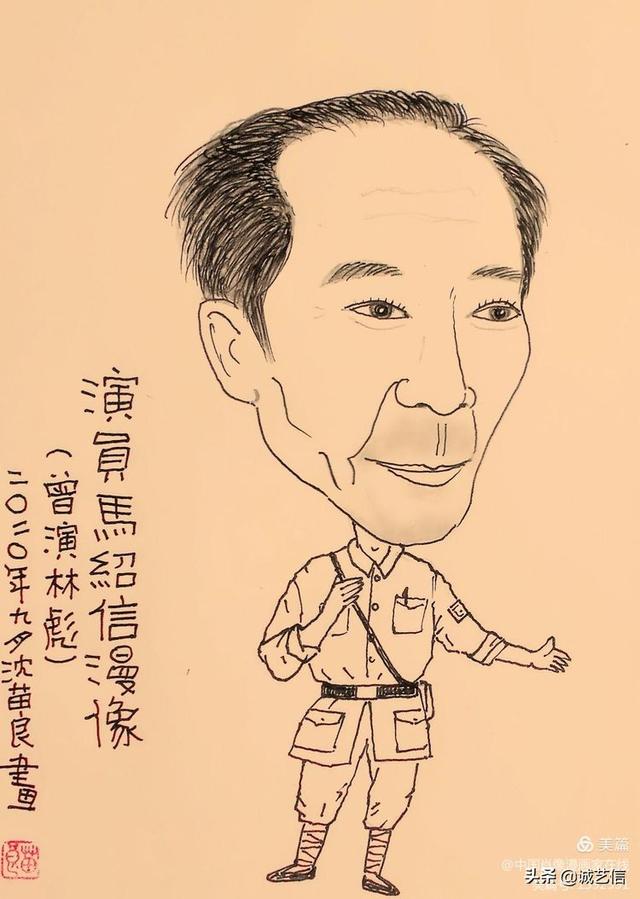 演員馬紹信漫像
（曾演林彪）
二〇二〇年九月沈苗良畫
美篇
@中国肖像漫画家在线
头条 @诚艺信